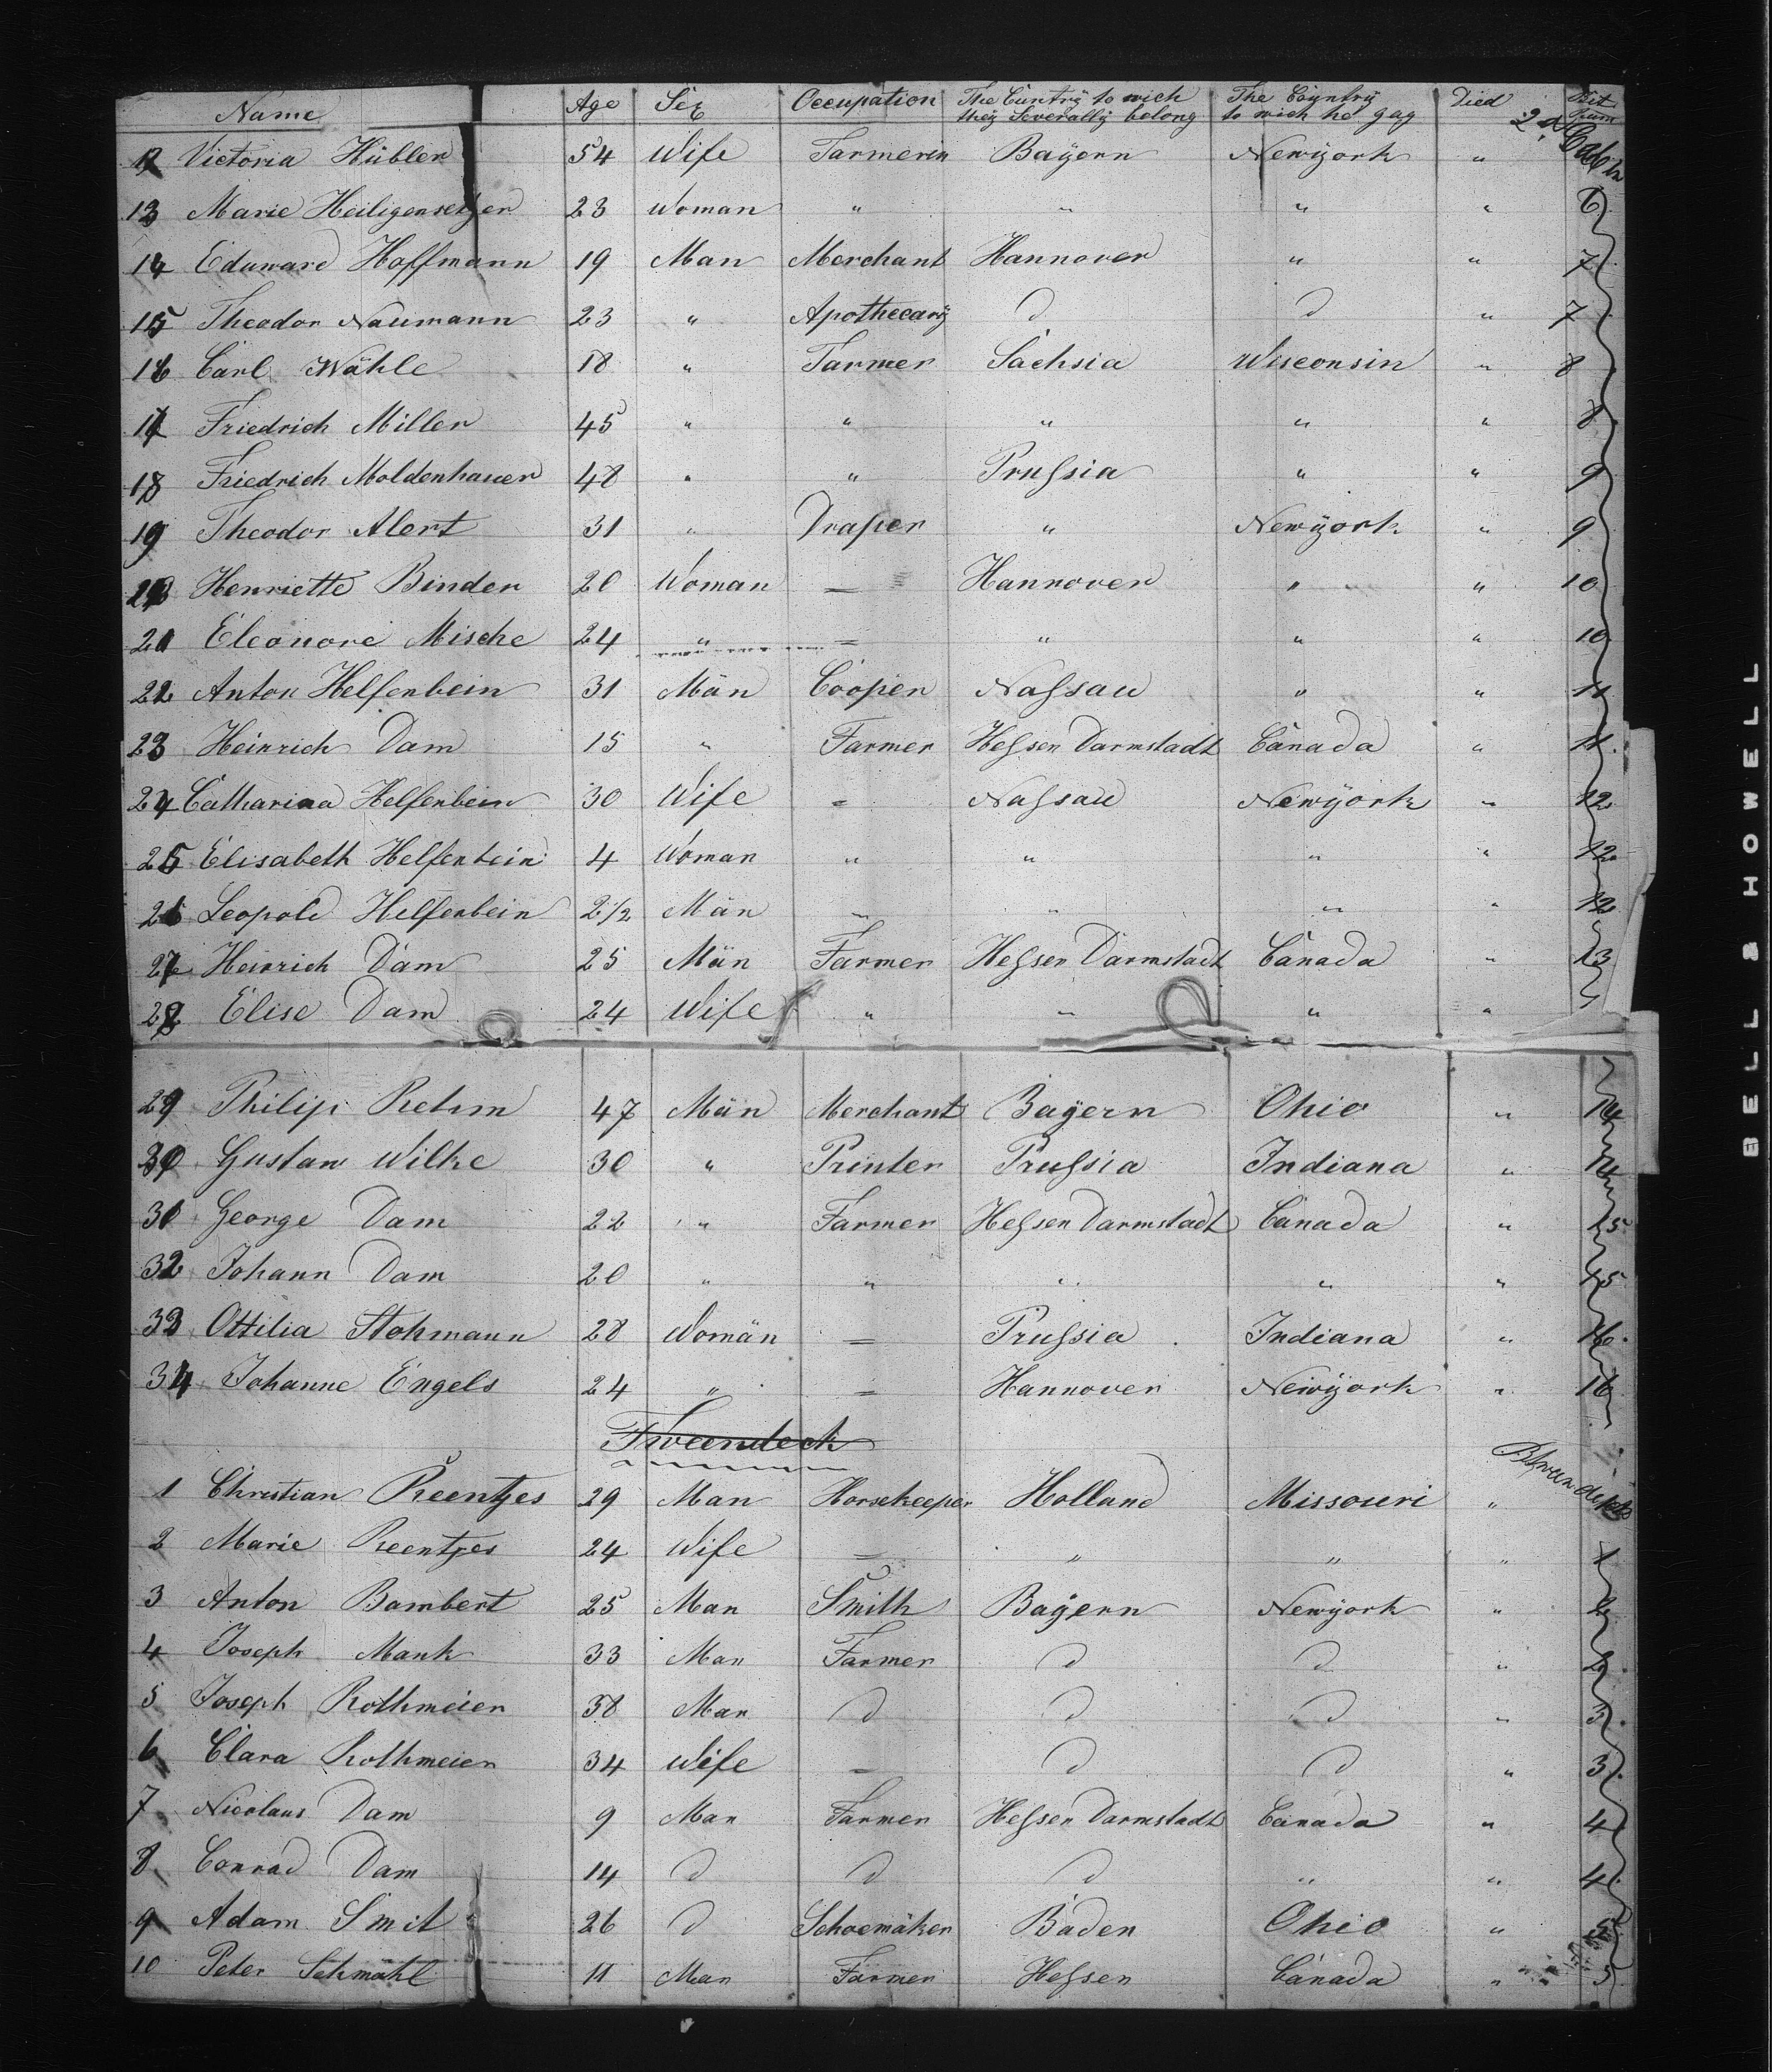 Name Age Sex Occupation The Cuntry to wich they Severally belong The Country to wich he gag Died
2d Cabin
12 Victoria Hübler 54 Wife Farmerin Bayern Newyork "
13 Marie Heiligensetzer 23 Woman " " " " 6
14 Eduward Hoffmann 19 Man Merchant Hannover " " 7
15 Theodor Naumann 23 " Apothecary d d " 7
16 Carl Wähle 18 " Farmer Sachsia Wisconsin " 8
17 Friedrich Miller 45 " " " " " 8
18 Friedrich Moldenhauer 48 " " Prussia " " 9
19 Theodor Alert 31 " Draper " Newyork " 9
20 Henriette Binder 20 Woman = Hannover " " 10
21 Eleonore Mische 24 " = " " " 10
22 Anton Helfenbein 31 Män Cooper Nassau " " 11
23 Heinrich Dam 15 " Farmer Hessen Darmstadt Canada " 11.
24 Catharina Helfenbein 30 Wife = Nassau Newyork " 12
25 Elisabeth Helfenbein 4 Woman " " " " 12
26 Leopold Helfenbein 2 1/2 Män " " " " 12
27 Heinrich Dam 25 Män Farmer Hessen Darmstadt Canada " 13
28 Elise Dam 24 Wife " " " "
29 Philip Rehm 47 Män Merchant Bayern Ohio " 14
30 Gustaw Wilke 30 " Printer Prussia Indiana " 14
31 George Dam 22 " Farmer Hessen Darmstadt Canada " 15
32 Johann Dam 20 " " " " " 15
33 Ottilia Stohmann 28 Womän = Prussia Indiana " 16.
34 Johanne Engels 24 " = Hannover Newyork " 16
Tweendeck
1 Christian Reentjes 29 Man Horsekeeper Holland Missouri "
2 Marie Reentjes 24 Wife = " " " 1
3 Anton Bambert 25 Man Smith Bayern Newyork " 2
4 Joseph Mank 33 Man Farmer d d " 2.
5 Joseph Rothmeier 38 Man d d d " 3.
6 Clara Rothmeier 34 Wife = d d " 3.
7 Nicolaus Dam 9 Man Farmer Hessen Darmstadt Canada " 4
8 Conrad Dam 14 d d d " " 4
9 Adam Smit 26 d Schoemäker Baden Ohio " 5
10 Peter Schmähl 11 Man Farmer Hessen Canada " 5
BELL & HOWELL